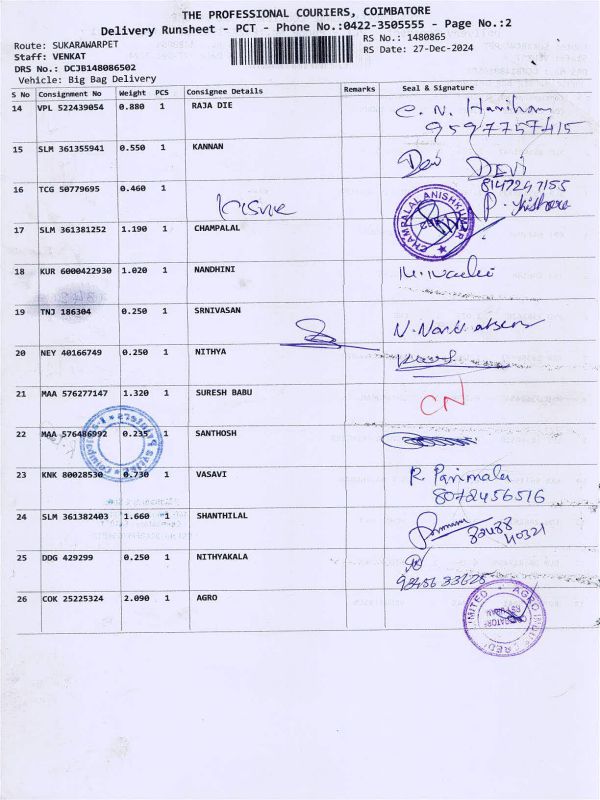 THE PROFESSIONAL COURIERS, COIMBATORE
Delivery Runsheet - PCT - Phone No.:0422-3505555 - Page No.:2
Route: SUKARAWARPET
RS No.: 1480865
Staff: VENKAT
RS Date: 27-Dec-2024
DRS No.: DCJB148086502
Vehicle: Big Bag Delivery
S No Consignment No Weight PCS Consignee Details Remarks Seal & Signature
14 VPL 522439054 0.880 1 RAJA DIE C. N. Hariharan
9597757415
15 SLM 361355941 0.550 1 KANNAN Devi DEVI
8147247155
16 TCG 50779695 0.460 1 P. Kishore
CHAMPALAL ANISHKUMAR
17 SLM 361381252 1.190 1 CHAMPALAL
18 KUR 6000422930 1.020 1 NANDHINI
19 TNJ 186304 0.250 1 SRNIVASAN
20 NEY 40166749 0.250 1 NITHYA
21 MAA 576277147 1.320 1 SURESH BABU CN
22 MAA 576486992 0.235 1 SANTHOSH
23 KNK 80028530 0.730 1 VASAVI R. Parimala
8072456516
24 SLM 361382403 1.660 1 SHANTHILAL
25 DDG 429299 0.250 1 NITHYAKALA
26 COK 25225324 2.090 1 AGRO
AGRO